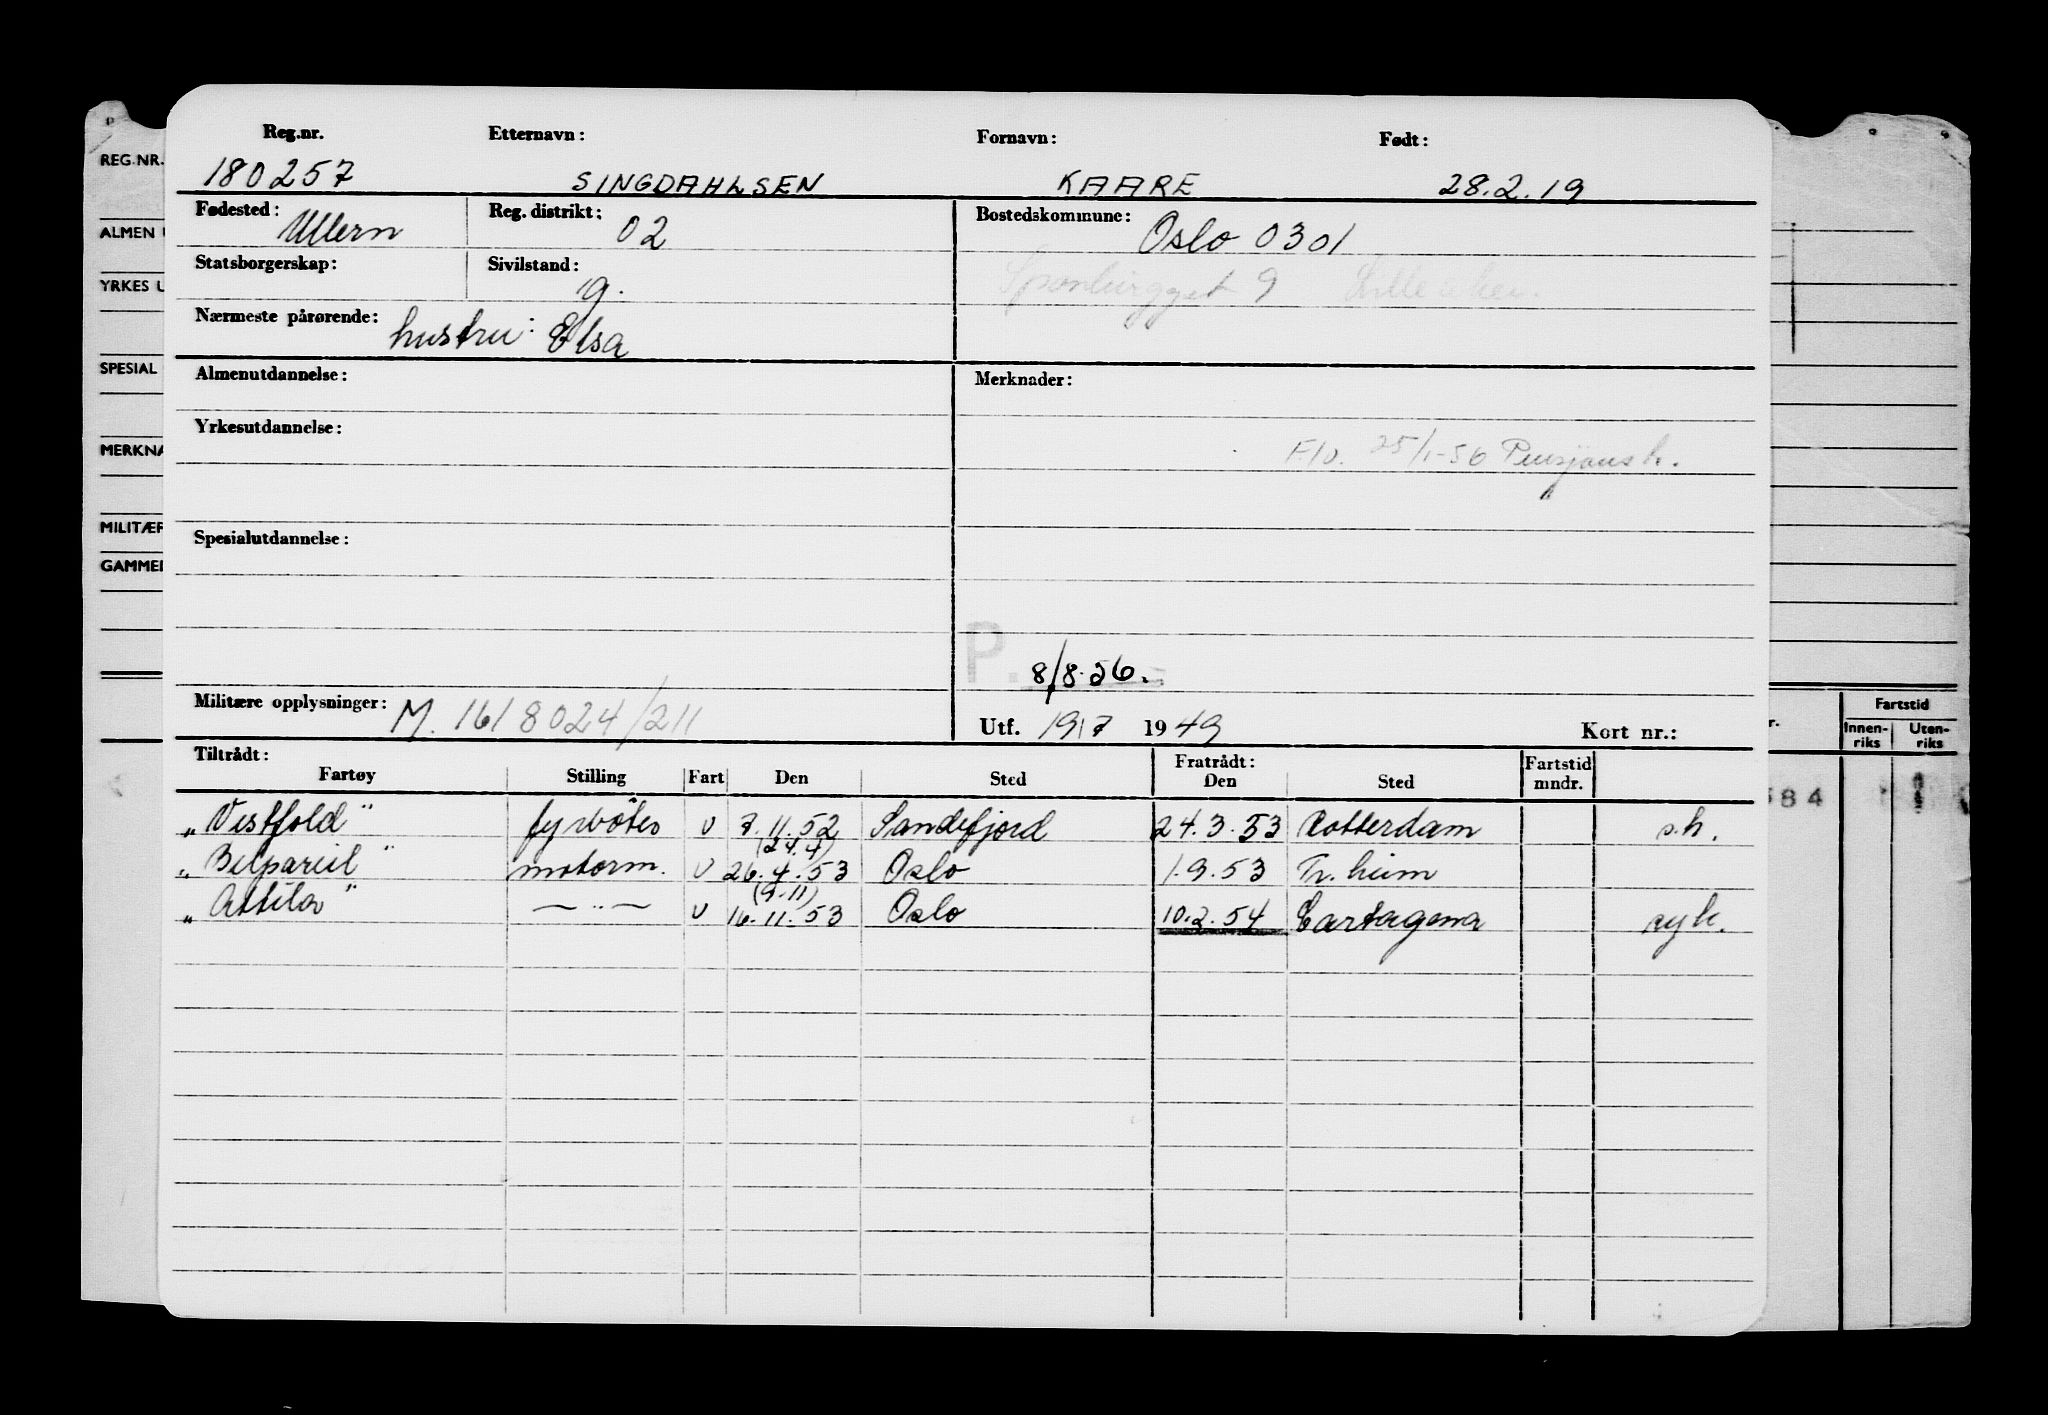 Reg.nr. Etternavn: Fornavn: Født:
180257 SINGDAHLSEN KAARE 28.2.19
Fødested: Ullern Reg. distrikt: 02 Bostedskommune: Oslo 0301
Statsborgerskap: Sivilstand: g. 9
Nærmeste pårørende: hustru: Elsa
Almenutdannelse: Merknader:
Yrkesutdannelse: 25/1-56
Spesialutdannelse:
P. 8/8.56.
Militære opplysninger: M. 1618024/211 Utf. 19/7 1949 Kort nr.:
Tiltrådt: Fratrådt: Fartstid
Fartøy Stilling Fart Den Sted Den Sted mndr.
"Vestfold" fyrbøter U 7.11.52 Sandefjord 24.3.53 Rotterdam s.h.
(24.4)
"Belpareil" motorm. U 26.4.53 Oslo 1.9.53 Tr.heim
(9.11)
"Attila" — " — U 16.11.53 Oslo 10.2.54 Cartagena syk.
REG.NR.
ALMEN U
YRKES U
SPESIAL
MERKNA
MILITÆR
GAMMEL
r. Fartstid
Innen-riks Uten-riks
584